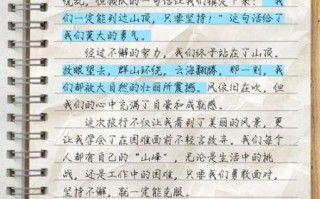 慌乱，但领队的一句话让我们镇定下来："我
们一定能到达山顶，只要坚持！"这句话给了
我们莫大的勇气。
经过不懈的努力，我们终于站在了山顶。
放眼望去，群山环绕，云海翻腾，那一刻，我
们都被大自然的壮丽所震撼。风依旧在吹，但
我们的心中充满了自豪和成就感。
这次旅行不仅让我看到了美丽的风景，更
让我学会了在困难面前不轻言放弃。我们每个
人都有自己的"山峰"，无论是生活中的挑
战，还是工作中的困难，只要我们勇敢面对，
坚持不懈，就一定能克服。